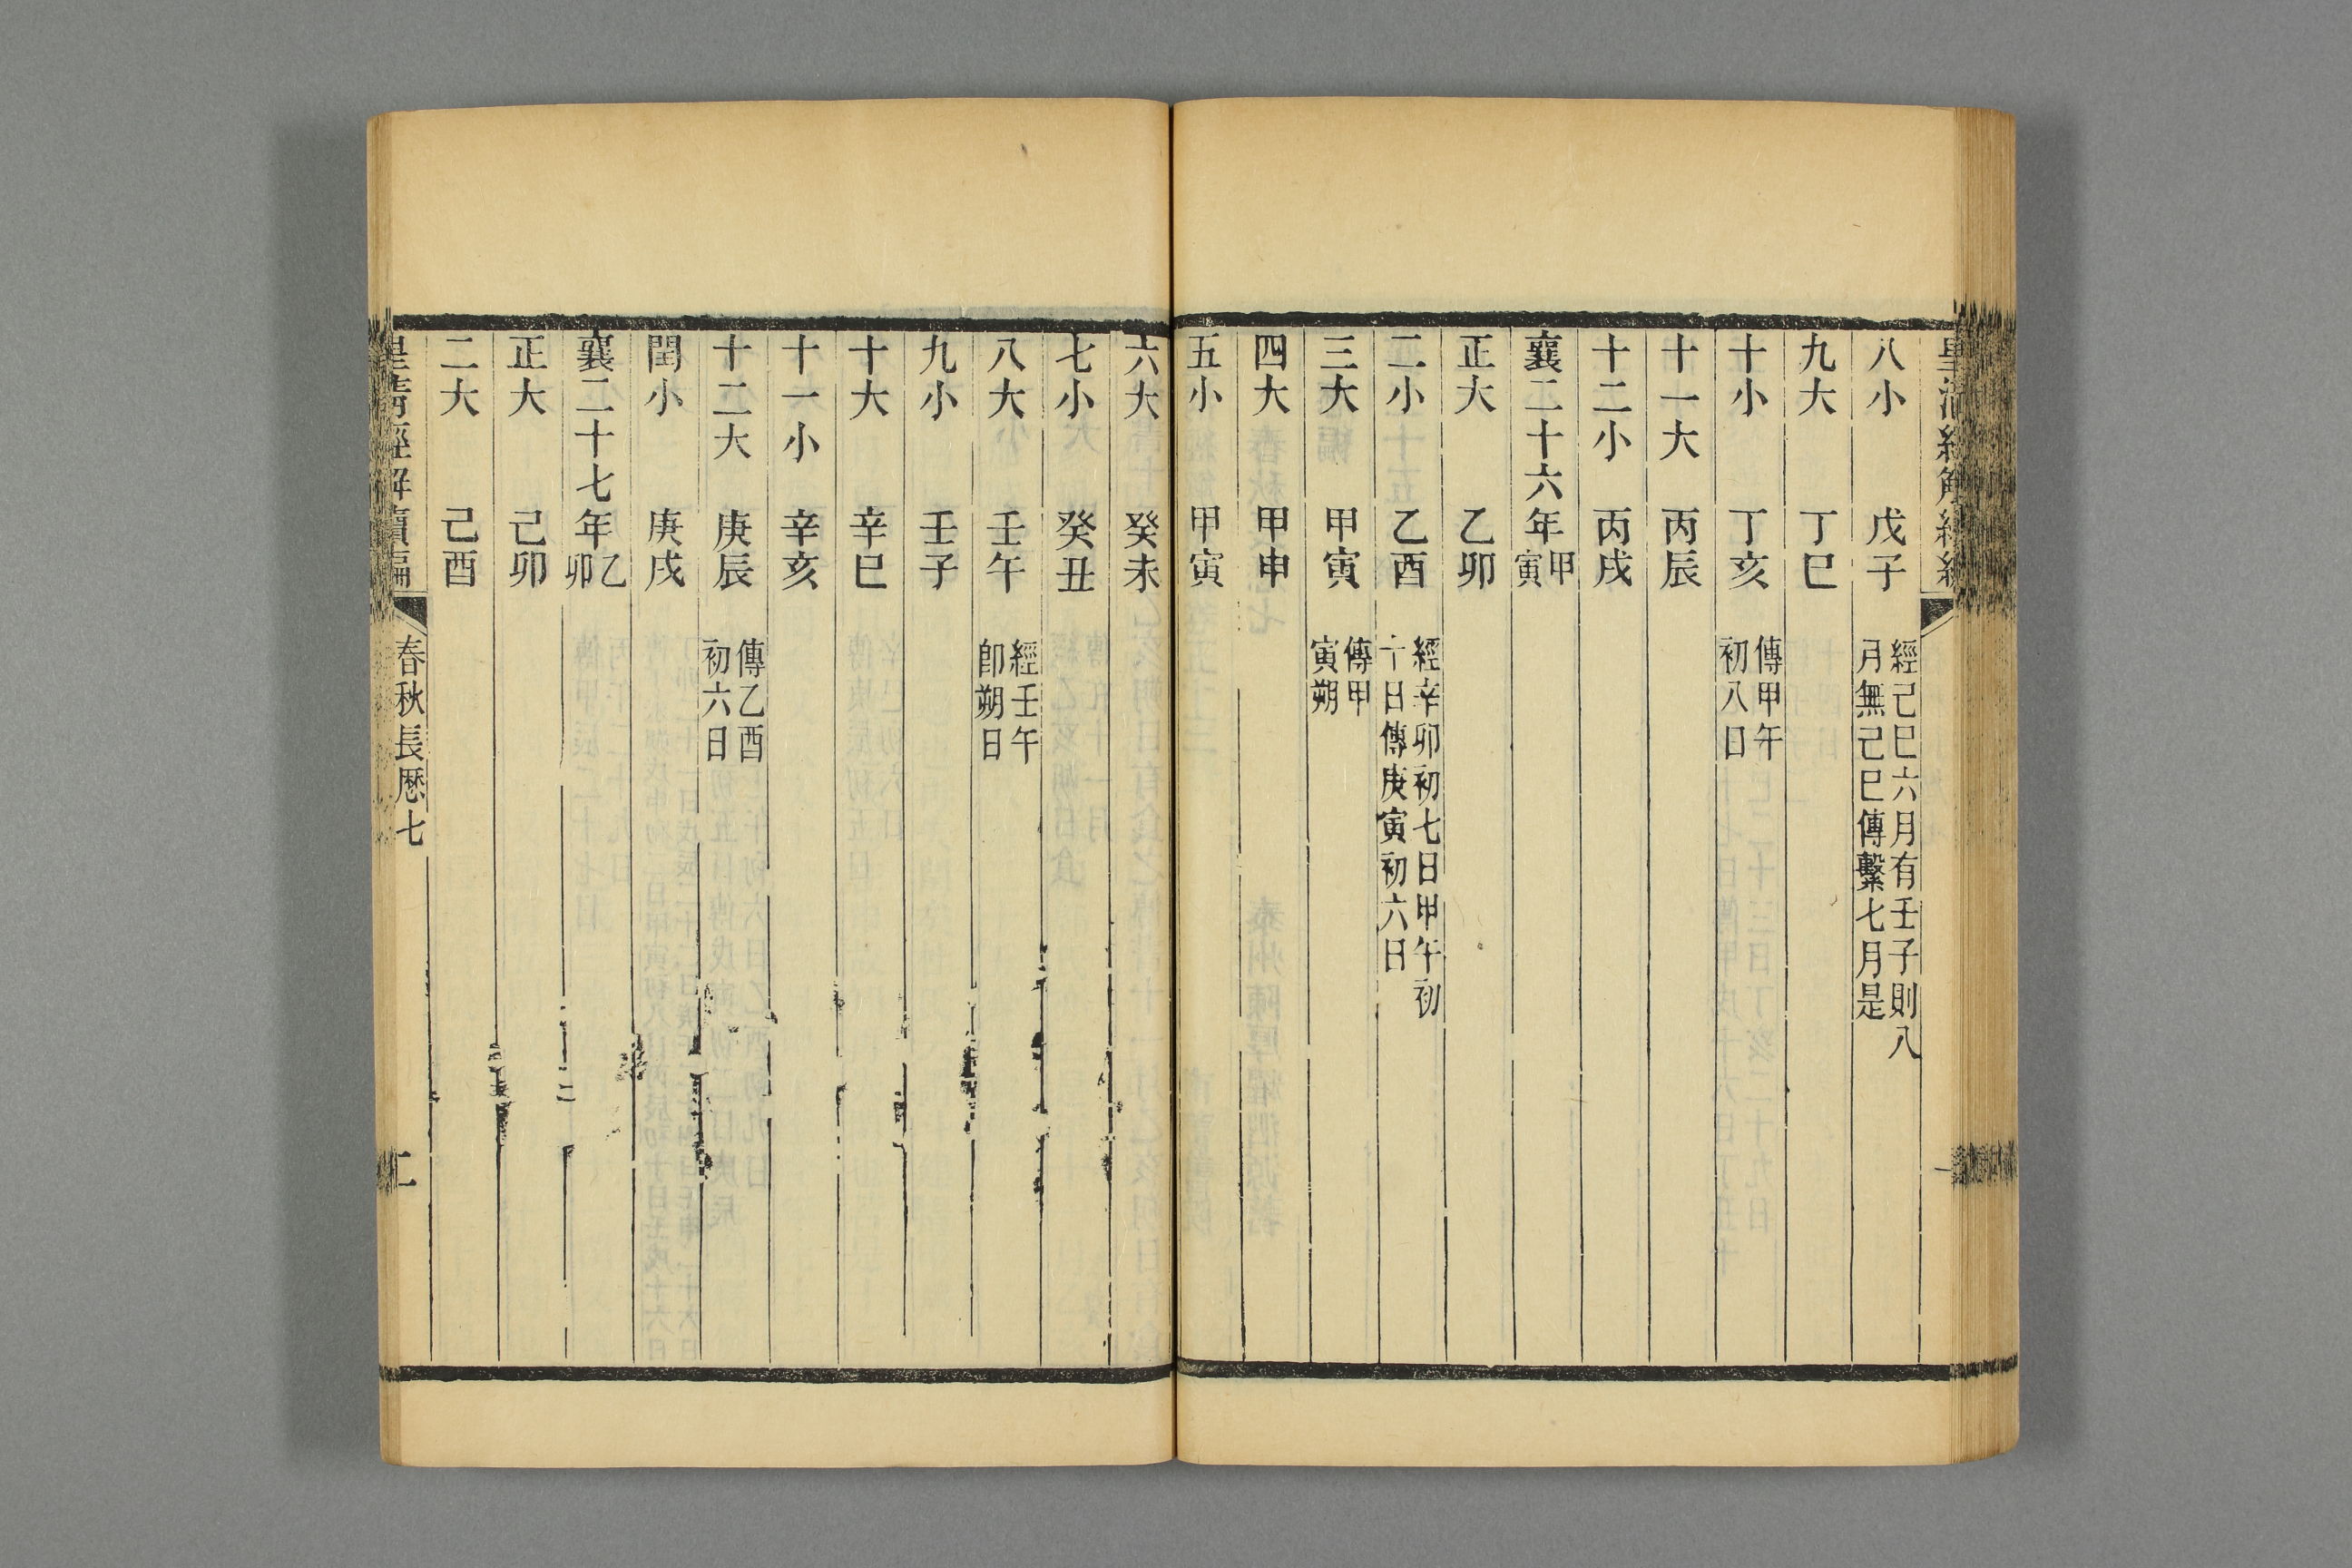 八小 戊子 經己巳六月有壬子則八
月無己巳傳繫七月是
九大 丁巳
十小 丁亥 傳甲午
初八日
十一大 丙辰
十二小 丙戌
襄二十六年 甲寅
正大 乙卯
二小 乙酉 經辛卯初七日甲午初
十日傳庚寅初六日
三大 甲寅 傳甲
寅朔
四大 甲申
五小 甲寅
六大 癸未
七小 癸丑
八大 壬午 經壬午
卽朔日
九小 壬子
十大 辛巳
十一小 辛亥
十二大 庚辰 傳乙酉
初六日
閏小 庚戌
襄二十七年 乙卯
正大 己卯
二大 己酉
皇淸經解續編 春秋長歷七 二